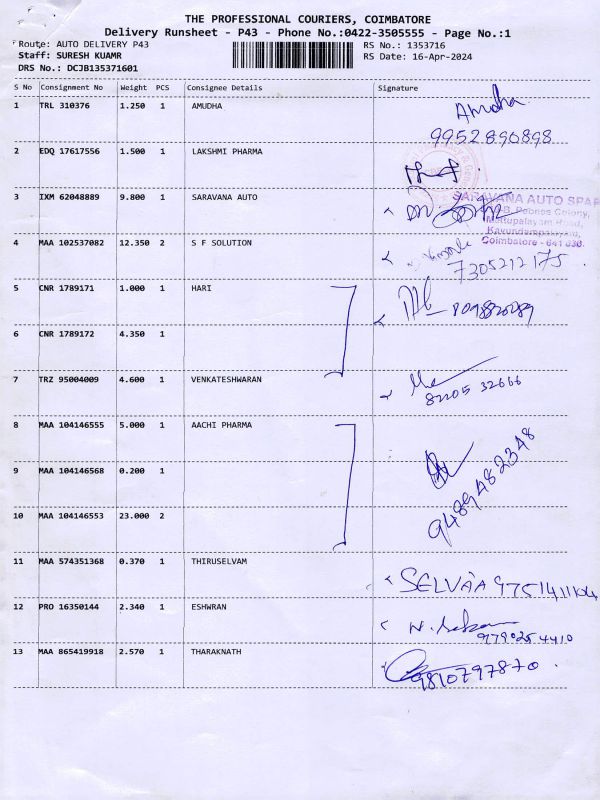 THE PROFESSIONAL COURIERS, COIMBATORE
Delivery Runsheet - P43 - Phone No.:0422-3505555 - Page No.:1
Route: AUTO DELIVERY P43 RS No.: 1353716
Staff: SURESH KUAMR RS Date: 16-Apr-2024
DRS No.: DCJB135371601
S No Consignment No Weight PCS Consignee Details Signature
1 TRL 310376 1.250 1 AMUDHA Amudha
9952890898
2 EDQ 17617556 1.500 1 LAKSHMI PHARMA
3 IXM 62048889 9.800 1 SARAVANA AUTO
SARAVANA AUTO SPAR
Colony,
Mettupalayam Road,
Kavundampalayam,
Coimbatore - 641 030.
4 MAA 102537082 12.350 2 S F SOLUTION
7305212175
5 CNR 1789171 1.000 1 HARI
6 CNR 1789172 4.350 1
7 TRZ 95004009 4.600 1 VENKATESHWARAN
82205 32666
8 MAA 104146555 5.000 1 AACHI PHARMA
9489482348
9 MAA 104146568 0.200 1
10 MAA 104146553 23.000 2
11 MAA 574351368 0.370 1 THIRUSELVAM SELVAA
12 PRO 16350144 2.340 1 ESHWRAN
9790254410
13 MAA 865419918 2.570 1 THARAKNATH
9810797870